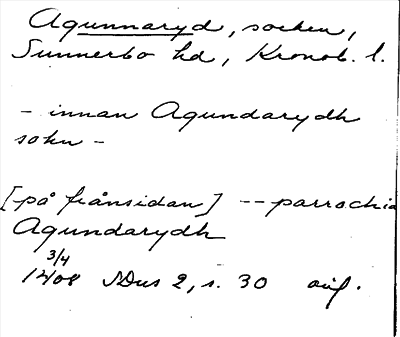 Agunnaryd, socken,
Sunnerbo hd, Kronob. l.
- innan Agundarydh
sokn -
[på frånsidan] -- parrochia
Agundarydh
3/4
1408 SDns 2, s. 30 avf.